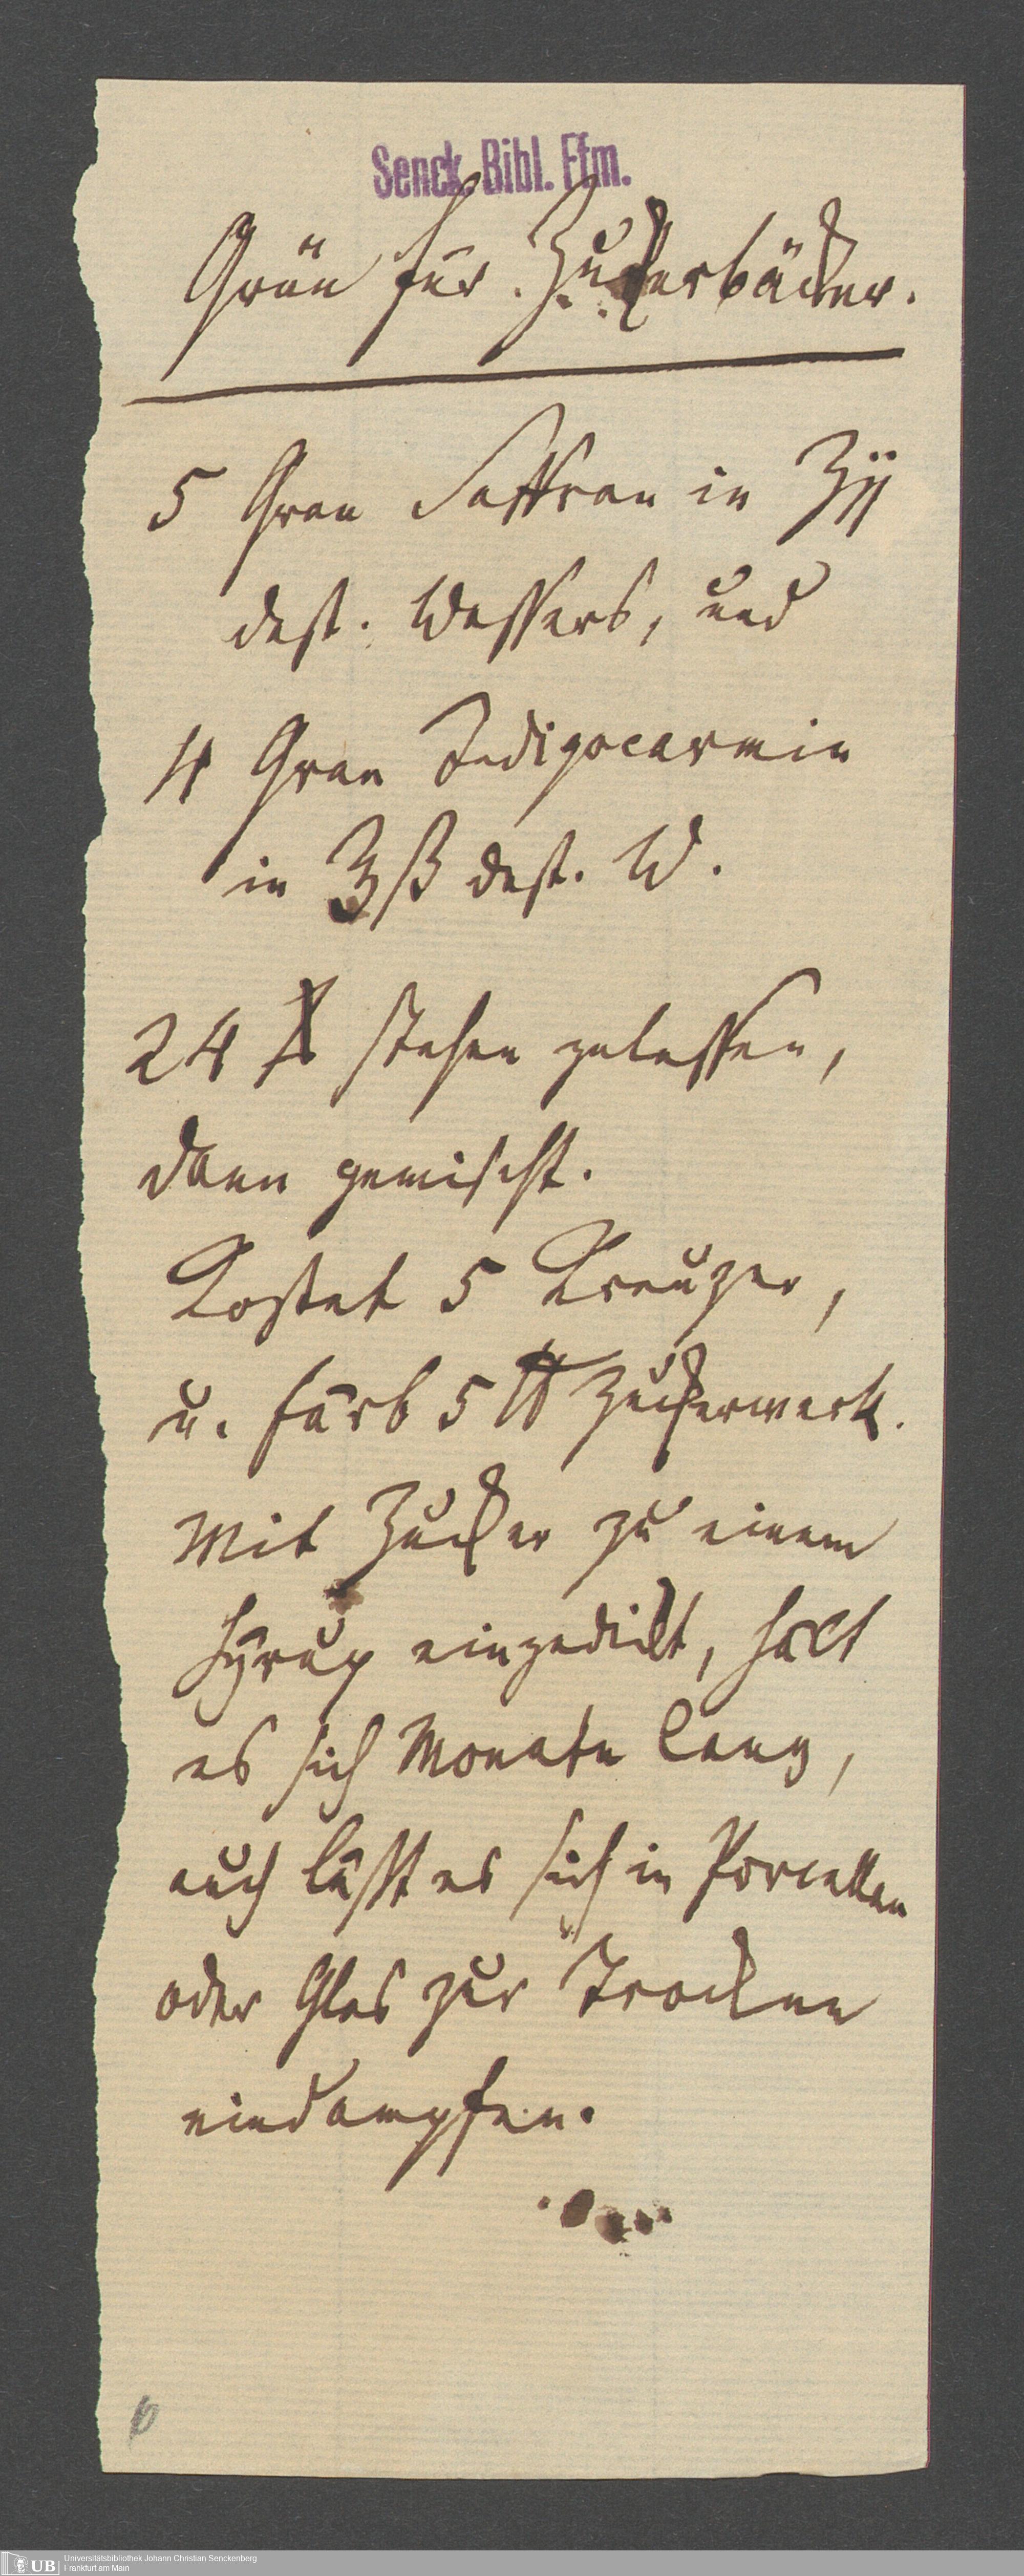 Senck. Bibl. Ffm.
Grün für Zuckerbäcker.
5 Gran Saffran in ℥ij
dest. Wassers, und
4 Gran Indigocarmin
in ℥ß dest. W.
24 stehen gelassen,
dann gemischt.
Kostet 5 Kreuzer,
u. färb 5 ℔ Zuckerwerk.
Mit Zucker zu einem
Syrup eingedickt, hält
es sich Monate lang,
auch läßt es sich in Porcellan
oder Glas zur Trockne
eindampfen.
6
UB
Universitätsbibliothek Johann Christian Senckenberg
Frankfurt am Main